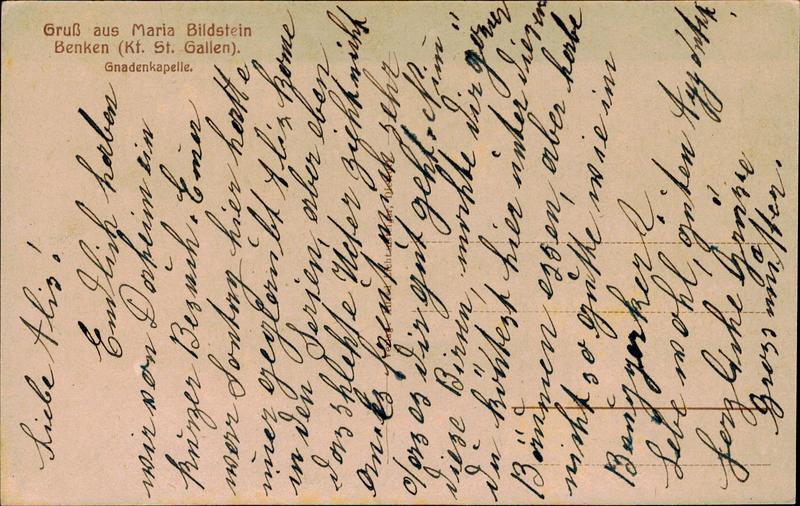 Gruß aus Maria Bildstein
Benken (Kt. St. Gallen).
Gnadenkapelle.
Liebe Alis!
Endlich haben
wir von Daheim ein
kurzer Besuch. Emer
war Sontag hier hatte
imer geglaubt Alis kome
in den Ferien, aber eben
das schlehte Weter
an. Es freut mich sehr
das es dir gut geht. Nim
diese Birnen, mochte dir gönen
du köntest hier unter diesen
Bäumen essen, aber habe
nicht so gute wie im
Bangerker?
Lebe wohl, guten Appentit
herzliche Grüsse
Grossmutter.